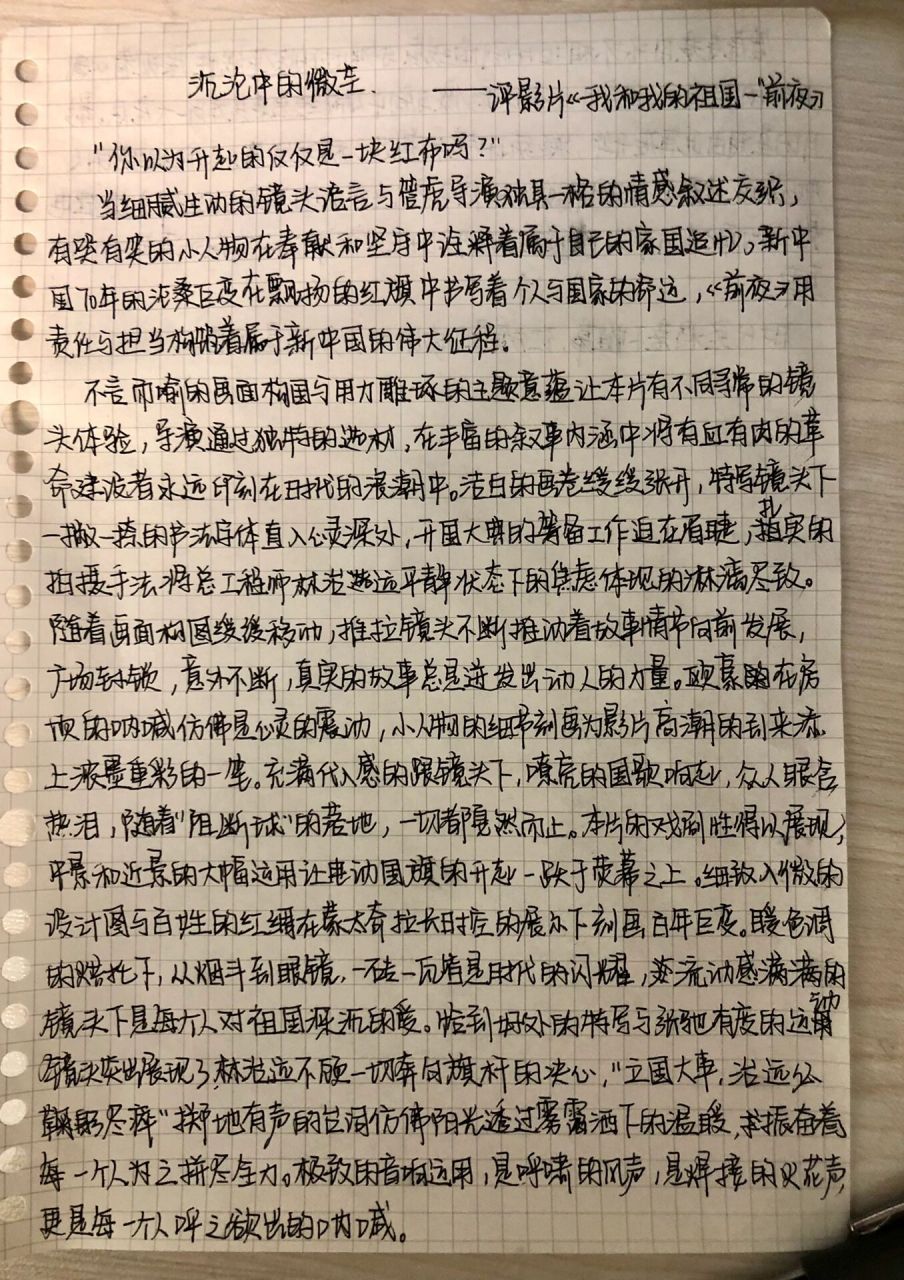 沉沦中的微茫. ——评影片《我和我的祖国—“前夜》
“你以为升起的仅仅是一块红布吗？”
当细腻生动的镜头语言与管虎导演独具一格的情感叙述交织，
有哭有笑的小人物在奉献和坚守中诠释着属于自己的家国追忆，新中
国70年的沧桑巨变在飘扬的红旗中书写着个人与国家的命运，《前夜》用
责任与担当构筑着属于新中国的伟大征程。
不言而喻的画面构图与用力雕琢的主题意蕴让本片有不同寻常的镜
头体验，导演通过独特的选材，在丰富的叙事内涵中将有血有肉的革
命建设者永远印刻在时代的浪潮中。洁白的画卷缓缓张开，特写镜头下
一撇一捺的书法字体直入心灵深处，开国大典的筹备工作迫在眉睫，扎实的
拍摄手法将总工程师林治远平静状态下的焦虑体现的淋漓尽致。
随着画面构图缓缓移动，推拉镜头不断推动着故事情节向前发展，
广场封锁，意外不断，真实的故事总是迸发出动人的力量。欧豪 在房
顶的呐喊仿佛是心灵的震动，小人物的细节刻画为影片高潮的到来添
上浓墨重彩的一笔。充满代入感的跟镜头下，嘹亮的国歌响起，众人眼含
热泪，随着“阻断球”的落地，一切都戛然而止。本片的戏剧性得以展现，
中景和近景的大幅运用让电动国旗的升起一跃于荧幕之上。细致入微的
设计图与百姓的红绸在蒙太奇拉长时空的展示下刻画百年巨变。暖色调
的烘托下，从烟斗到眼镜，一砖一瓦皆是时代的闪耀，游流动感满满的
镜头下是每个人对祖国深沉的爱。恰到好处的特写与张弛有度的运动
镜头突出展现了林治远不顾一切奔向旗杆的决心，“立国大事，治远必
鞠躬尽瘁”掷地有声的台词仿佛阳光透过雾霭洒下的温暖，振奋着
每一个人为之拼尽全力。极致的音响运用，是呼啸的风声，是焊接的火花声，
更是每一个人呼之欲出的呐喊。